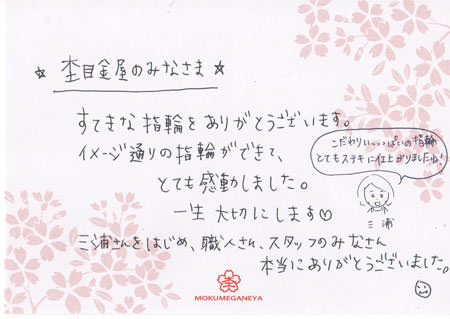 ☆ 杢目金屋のみなさま ☆
すてきな指輪をありがとうございます。
イメージ通りの指輪ができて、
とても感動しました。
一生大切にします♡
こだわりいっっぱいの指輪
とてもステキに仕上がりましたね!
三浦
三浦さんをはじめ、職人さん、スタッフのみなさん
本当にありがとうございました。
MOKUMEGANEYA